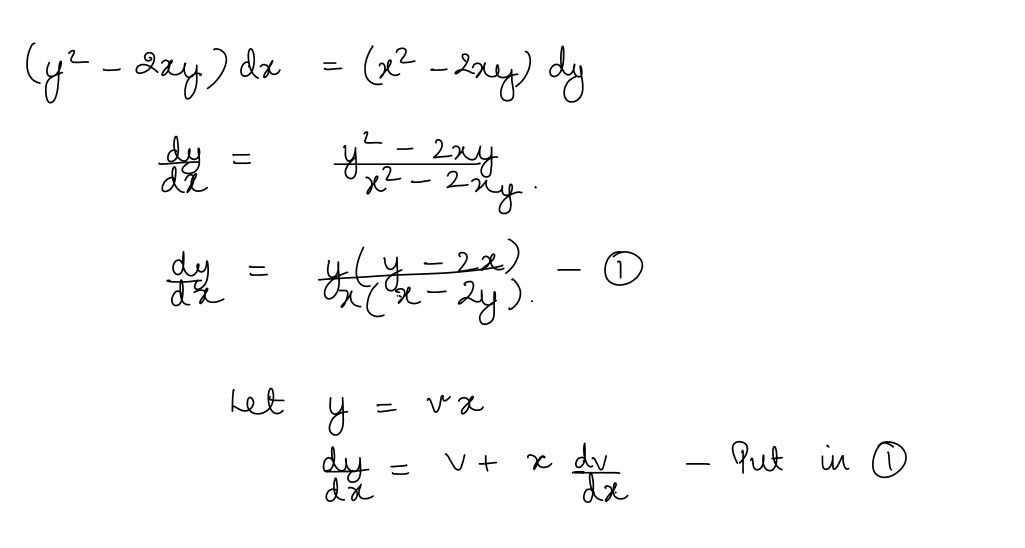 (y² - 2xy) dx = (x² - 2xy) dy
dy/dx = (y² - 2xy)/(x² - 2xy).
dy/dx = y(y - 2x)/x(x - 2y). - ①
Let y = vx
dy/dx = v + x dv/dx - Put in ①